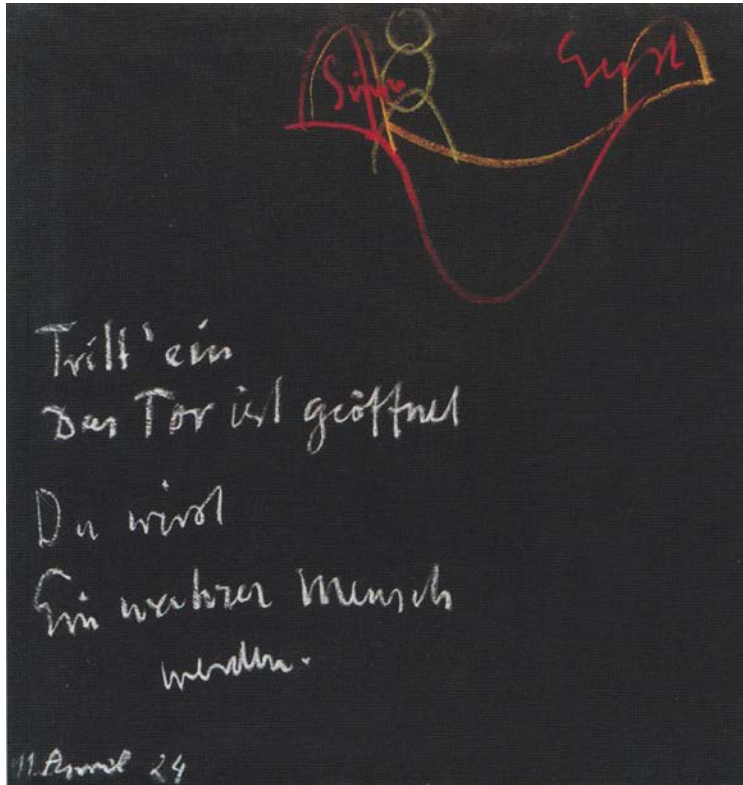 Sinne
Geist
Tritt' ein
Das Tor ist geöffnet
Du wirst
Ein wahrer Mensch
werden.
11. April 24